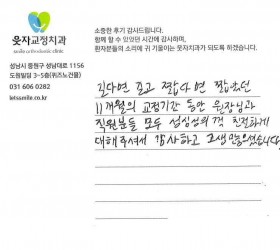 웃자교정치과
smile orthodontic clinic
성남시 중원구 성남대로 1156
도원빌딩 3~5층(퀴즈노건물)
031 606 0282
letssmile.co.kr
소중한 후기 감사드립니다.
함께 할 수 있었던 시간에 감사하며,
환자분들의 소리에 귀 기울이는 웃자교정치과가 되도록 하겠습니다.
길다면 길고 짧다면 짧았던
11개월의 교정기간 동안 원장님과
직원분들 모두 성심성의껏 친절하게
대해주셔서 감사하고 고생많으셨습니다